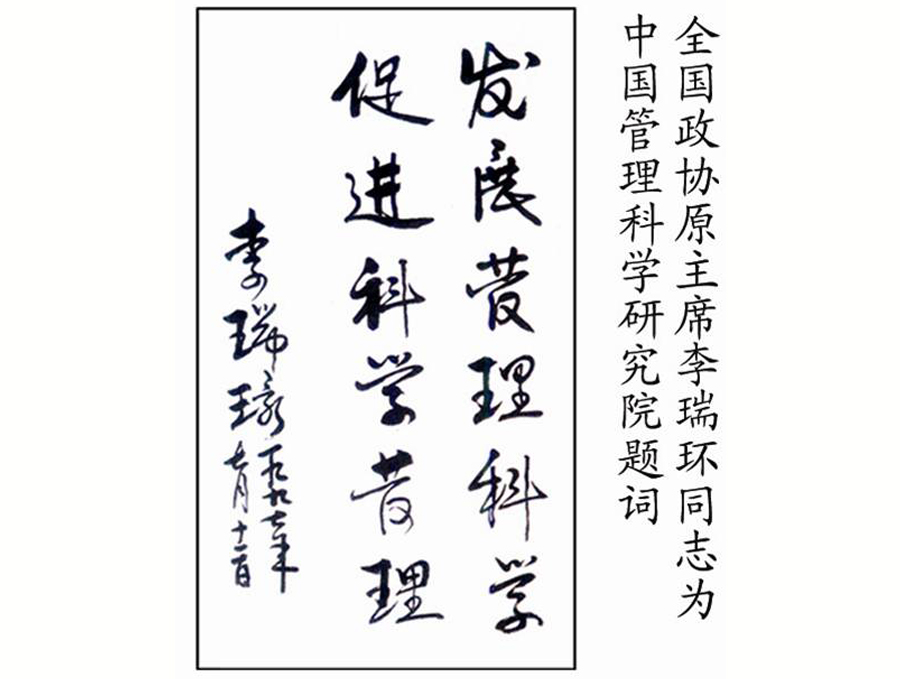 全国政协原主席李瑞环同志为
中国管理科学研究院题词
发展管理科学
促进科学管理
李瑞环
一九九七年
七月十一日